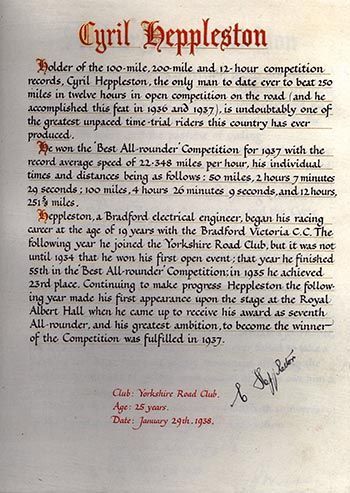 Cyril Heppleston
Holder of the 100-mile, 200-mile and 12-hour competition
records, Cyril Heppleston, the only man to date ever to beat 250
miles in twelve hours in open competition on the road (and he
accomplished this feat in 1936 and 1937), is undoubtably one of
the greatest unpaced time-trial riders this country has ever
produced.
He won the 'Best All-rounder' Competition for 1937 with the
record average speed of 22·348 miles per hour, his individual
times and distances being as follows: 50 miles, 2 hours 7 minutes
29 seconds; 100 miles, 4 hours 26 minutes 9 seconds, and 12 hours,
251⅜ miles.
Heppleston, a Bradford electrical engineer, began his racing
career at the age of 19 with the Bradford Victoria C.C. The
following year he joined the Yorkshire Road Club, but it was not
until 1934 that he won his first open event; that year he finished
55th in the 'Best All-rounder' Competition; in 1935 he achieved
23rd place. Continuing to make progress Heppleston the follow-
ing year made his first appearance upon the stage at the Royal
Albert Hall when he came up to receive his award as seventh
All-rounder, and his greatest ambition, to become the winner
of the Competition was fulfilled in 1937.
C Heppleston
Club: Yorkshire Road Club.
Age: 25 years.
Date: January 29th, 1938.